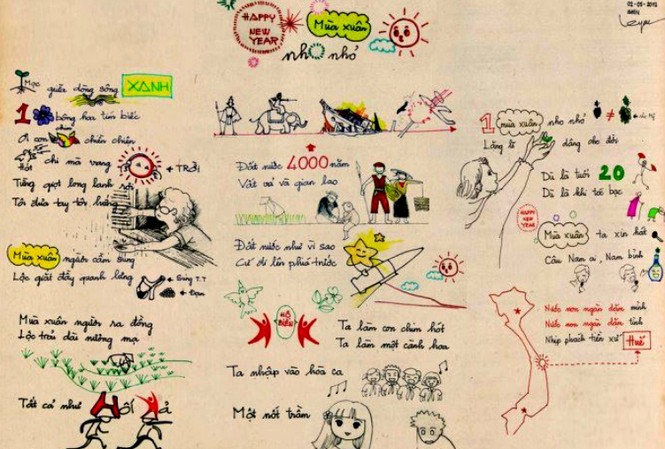 HAPPY
NEW
YEAR
Mùa xuân
nho nhỏ
02-05-2012
Mọc giữa dòng sông XANH
1 bông hoa tím biếc
Ơi con chim chiền chiện
Hót chi mà vang TRỜI
Từng giọt long lanh rơi
Tôi đưa tay tôi hứng
Mùa xuân người cầm súng
Lộc giắt đầy quanh lưng
Súng
Đạn
Mùa xuân người ra đồng
Lộc trải dài nương mạ
Tất cả như HỐI HẢ
Đất nước 4000 năm
Vất vả và gian lao
Đất nước như vì sao
Cứ đi lên phía trước
Ta làm con chim hót
Ta làm một cành hoa
Ta nhập vào hòa ca
Một nốt trầm
1 mùa xuân nho nhỏ
Lặng lẽ dâng cho đời
Dù là tuổi 20
Dù là khi tóc bạc
HAPPY
NEW
YEAR
Mùa xuân ta xin hát
Câu Nam ai, Nam bình
Nước non ngàn dặm mình
Nước non ngàn dặm tình
Nhịp phách tiền xứ Huế